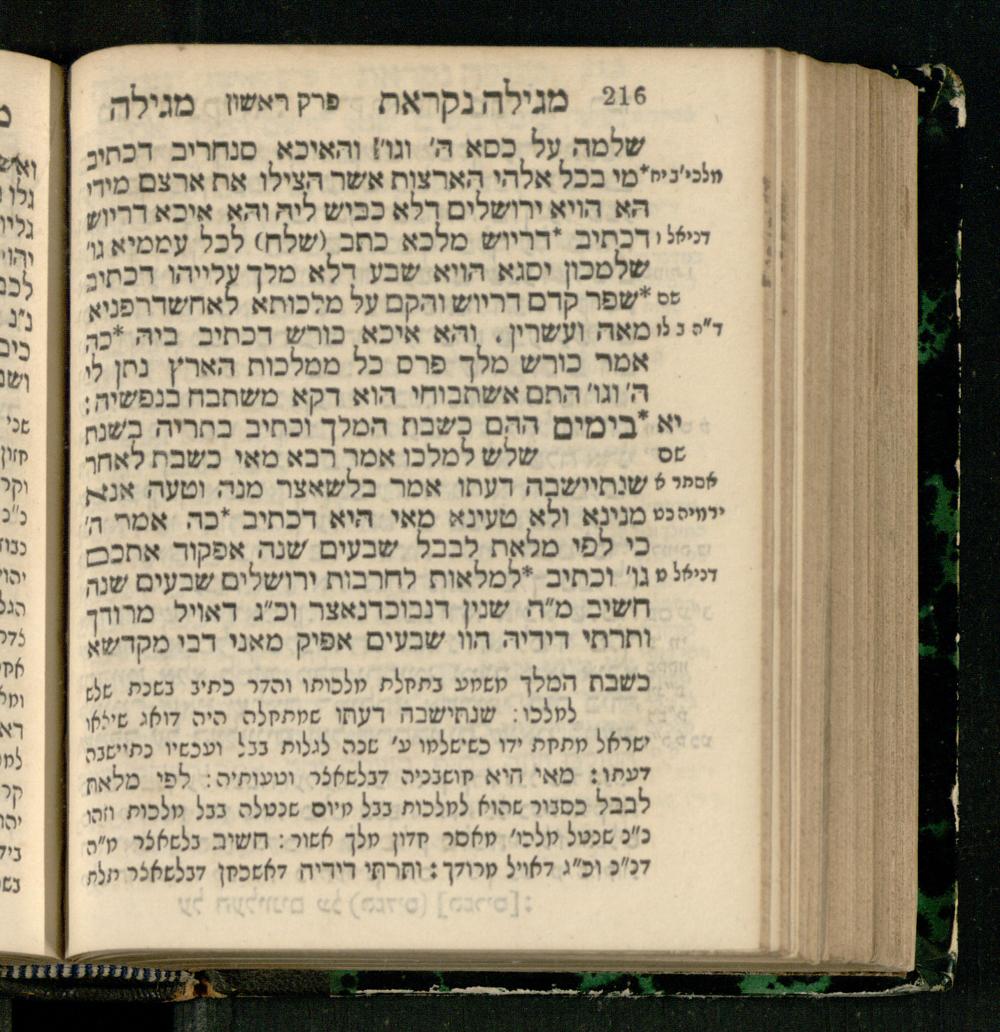 216 מגילה נקראת פרק ראשון מגילה
שלמה על כסא ה' וגו'] והאיכא סנחריב דכתיב
מלכי'ב יח *מי בכל אלהי הארצות אשר הצילו את ארצם מידי
הא הויא ירושלים דלא כביש ליה והא איכא דריוש
דניאל ו דכתיב *דריוש מלכא כתב (שלח) לכל עממיא גו'
שלמכון יסגא הויא שבע דלא מלך עלייהו דכתיב
שם *שפר קדם דריוש והקם על מלכותא לאחשדרפניא
ד"ה ב לו מאה ועשרין. והא איכא כורש דכתיב ביה *כה
אמר כורש מלך פרס כל ממלכות הארץ נתן לי
ה' וגו' התם אשתבוחי הוא דקא משתבח בנפשיה:
יא *בימים ההם כשבת המלך וכתיב בתריה בשנת
שם שלש למלכו אמר רבא מאי כשבת לאחר
אסתר א שנתיישבה דעתו אמר בלשאצר מנה וטעה אנא
ירמיה כט מנינא ולא טעינא מאי היא דכתיב *כה אמר ה'
כי לפי מלאת לבבל שבעים שנה אפקוד אתכם
דניאל ט גו' וכתיב *למלאות לחרבות ירושלים שבעים שנה
חשיב מ"ה שנין דנבוכדנאצר וכ"ג דאויל מרודך
ותרתי דידיה הוו שבעים אפיק מאני דבי מקדשא
כשבת המלך משמע בתחלת מלכותו והדר כתיב בשנת שלש
למלכו: שנתישבה דעתו שמתחלה היה דואג שיצאו
ישראל מתחת ידו כשישלמו ע' שנה לגלות בבל ועכשיו נתיישבה
דעתו: מאי היא חושבניה דבלשאצר וטעותיה: לפי מלאת
לבבל כסבור שהוא למלכות בבל מיום שנטלה בבל מלכות וזהו
נ"נ שנטל מלכו' מאסר חדון מלך אשור: חשיב בלשאצר מ"ה
דנ"נ וכ"ג דאויל מרודך: ותרתי דידיה דאשכחן דבלשאצר תלת